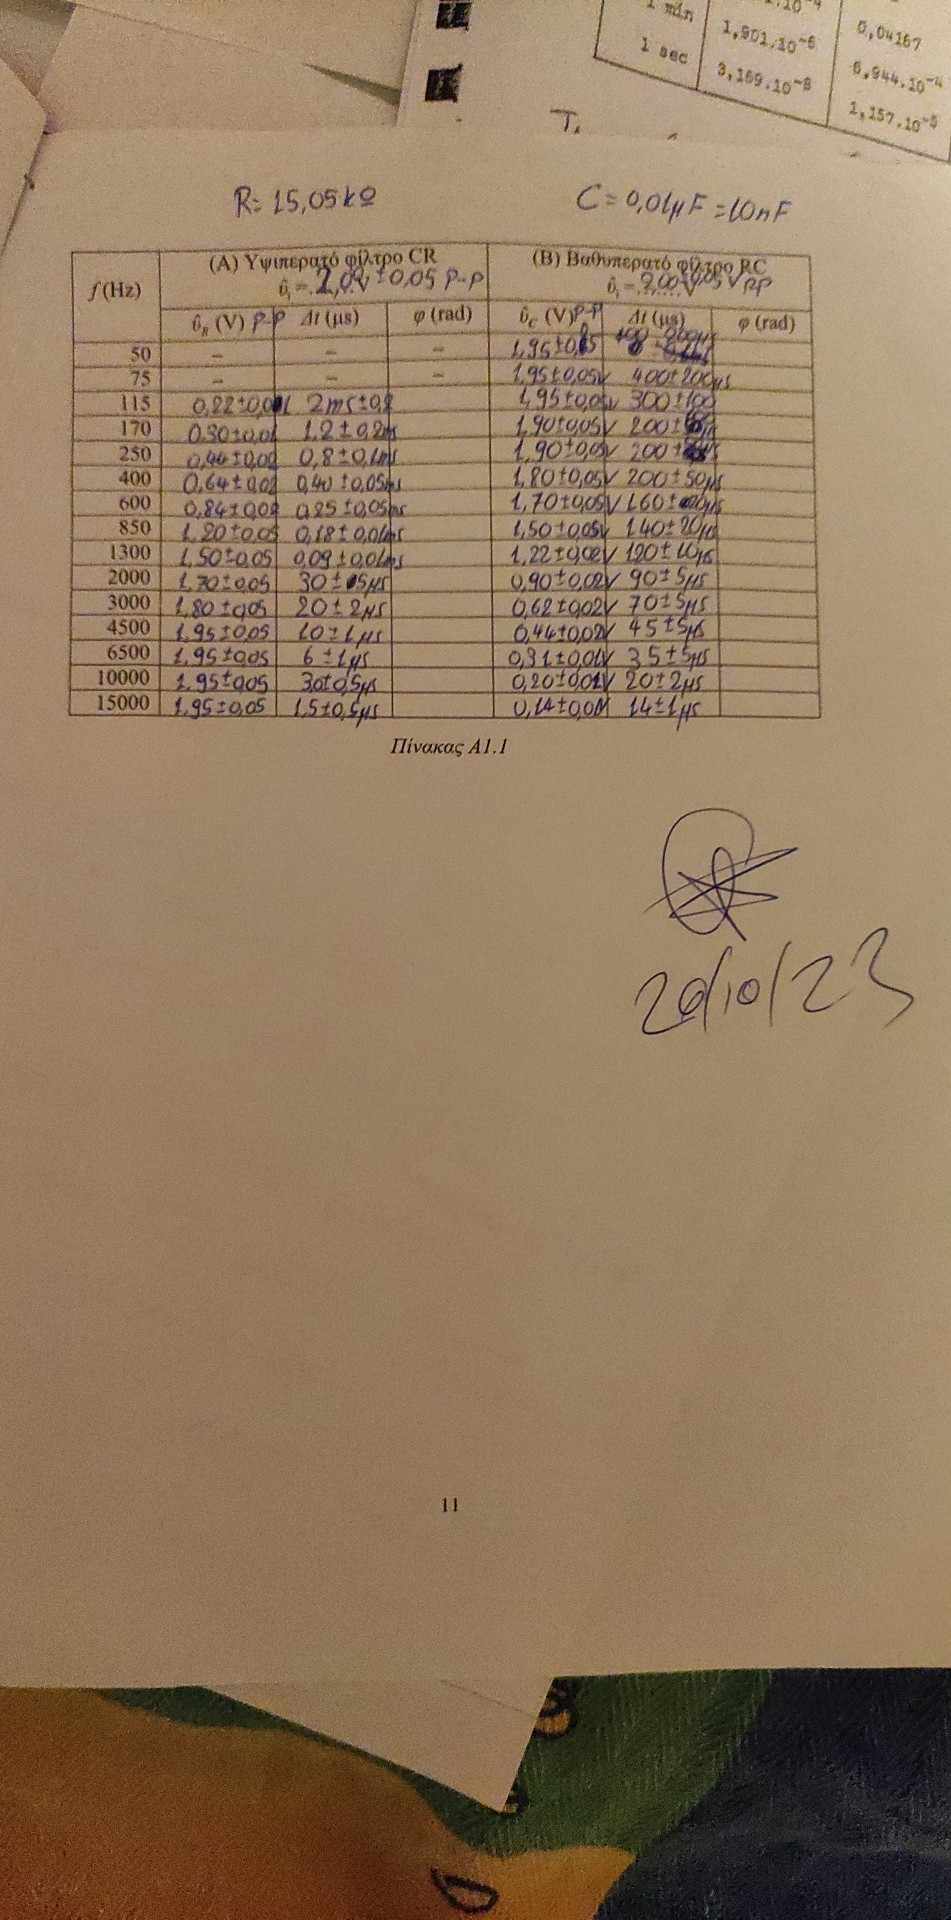 1 min
1 sec
1,901.10⁻⁶
3,169.10⁻⁸
0,04167
6,944.10⁻⁴
1,157.10⁻⁵
R= 15,05kΩ C = 0,01μF = 10nF
f (Hz) (A) Υψιπερατό φίλτρο CR (B) Βαθυπερατό φίλτρο RC
υ̂ᵢ = 2,00 V ±0,05 P-P υ̂ᵢ = 2,00±0,05 V PP
υ̂R (V) P-P Δt (μs) φ (rad) υ̂C (V) P-P Δt (μs) φ (rad)
50 – – – 1,95±0,05
75 – – – 1,95±0,05V 400±200μs
115 0,22±0,01 2ms±0,2 1,95±0,05V 300±100
170 0.30±0,01 1.2±0,2ms 1,90±0,05V 200±
250 0,44±0,02 0,8±0,1ms 1,90±0,05V 200±
400 0,64±0,02 0,40±0,05ms 1,80±0,05V 200±50μs
600 0,84±0,02 0,25±0,05ms 1,70±0,05V 160±20μs
850 1,20±0,05 0,18±0,01ms 1,50±0,05V 140±20μs
1300 1,50±0,05 0,09±0,01ms 1,22±0,02V 120±10μs
2000 1,70±0,05 30±5μs 0,90±0,02V 90±5μs
3000 1,80±0,05 20±2μs 0,62±0,02V 70±5μs
4500 1,95±0,05 10±1μs 0,44±0,02V 45±5μs
6500 1,95±0,05 6±1μs 0,31±0,01V 35±5μs
10000 1,95±0,05 3,0±0,5μs 0,20±0,01V 20±2μs
15000 1,95±0,05 1,5±0,5μs 0,14±0,01V 14±1μs
Πίνακας A1.1
26/10/23
11